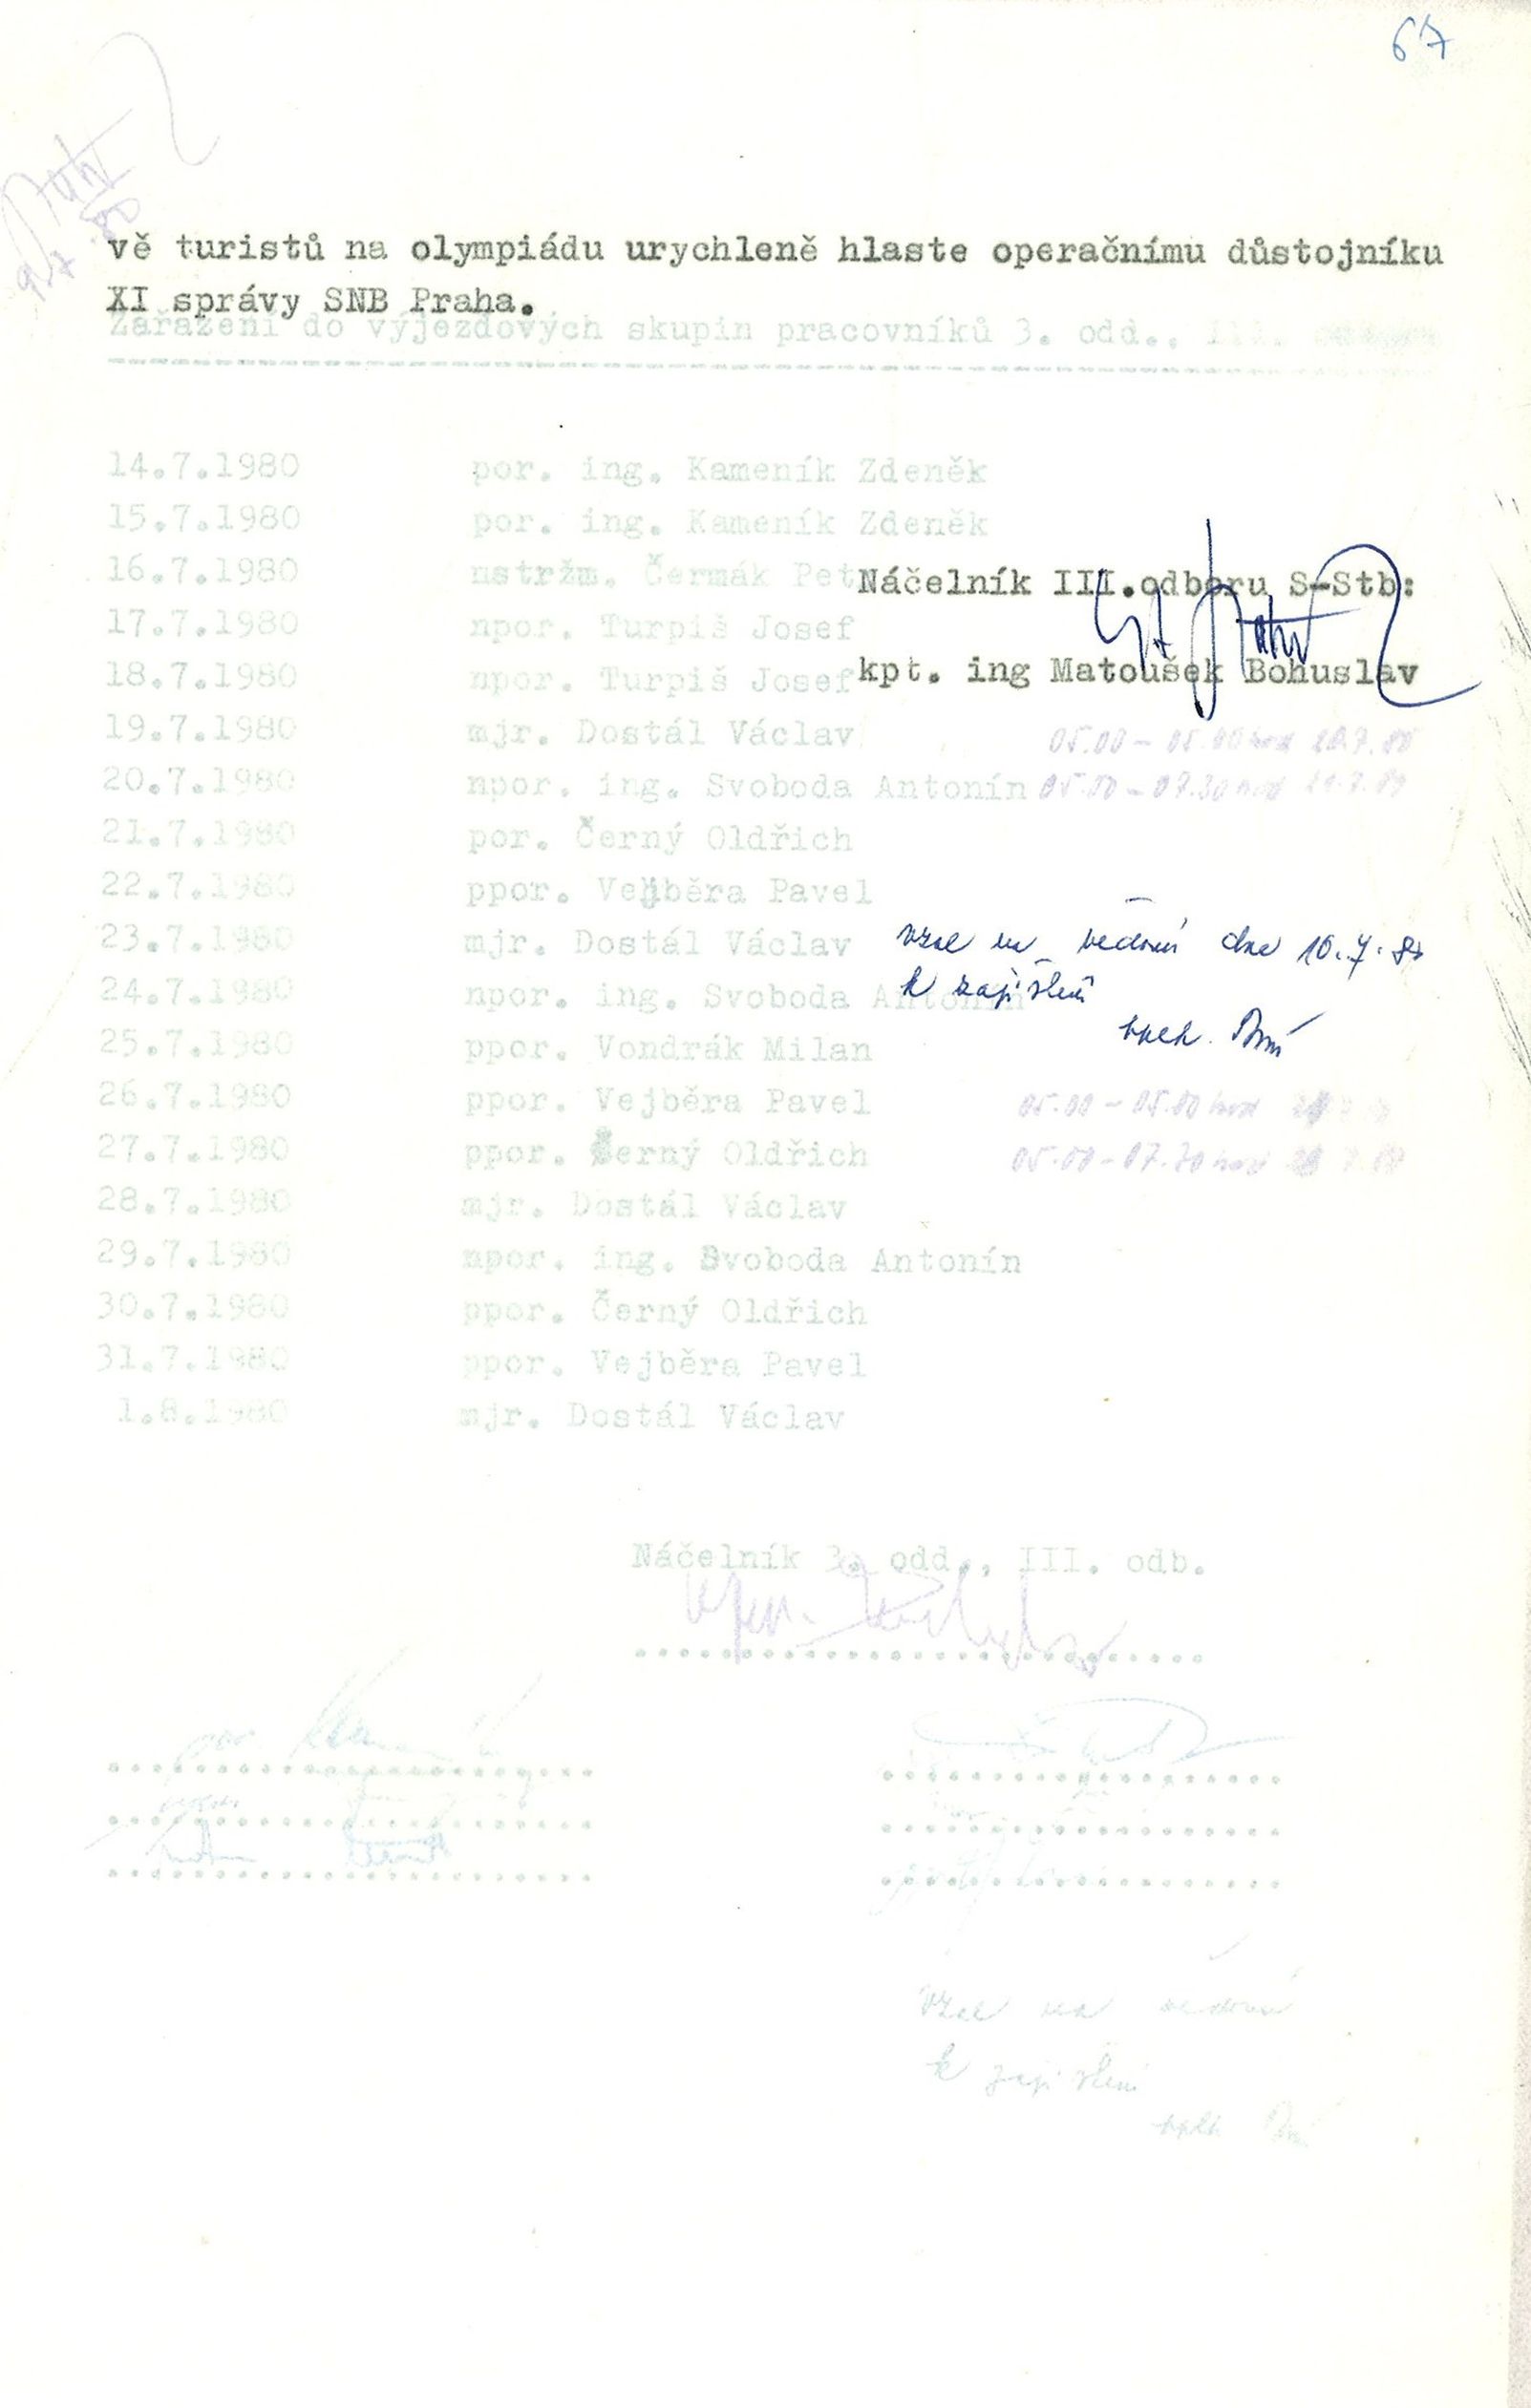 67
vě turistů na olympiádu urychleně hlaste operačnímu důstojníku
XI správy SNB Praha.
Zařazení do výjezdových skupin pracovníků 3. odd., III.
14.7.1980 por. ing. Kameník Zdeněk
15.7.1980 por. ing. Kameník Zdeněk
16.7.1980 nstržm. Čermák Pet
Náčelník III.odboru S-Stb:
17.7.1980 npor. Turpiš Josef
18.7.1980 npor. Turpiš Josef
kpt. ing Matoušek Bohuslav
19.7.1980 mjr. Dostál Václav 05.00 - 05.00 hod 20.7.80
20.7.1980 npor. ing. Svoboda Antonín 05.00 - 07.30 hod 21.7.80
21.7.1980 por. Černý Oldřich
22.7.1980 ppor. Vejběra Pavel
23.7.1980 mjr. Dostál Václav
vzal na vědomí dne 10.7.80
24.7.1980 npor. ing. Svoboda Antonín
k zajištění
25.7.1980 ppor. Vondrák Milan
26.7.1980 ppor. Vejběra Pavel 05.00 - 05.00 hod
27.7.1980 ppor. Černý Oldřich 05.00 - 07.30 hod
28.7.1980 mjr. Dostál Václav
29.7.1980 npor. ing. Svoboda Antonín
30.7.1980 ppor. Černý Oldřich
31.7.1980 ppor. Vejběra Pavel
1.8.1980 mjr. Dostál Václav
Náčelník 3. odd., III. odb.
vzal na vědomí
k zajištění